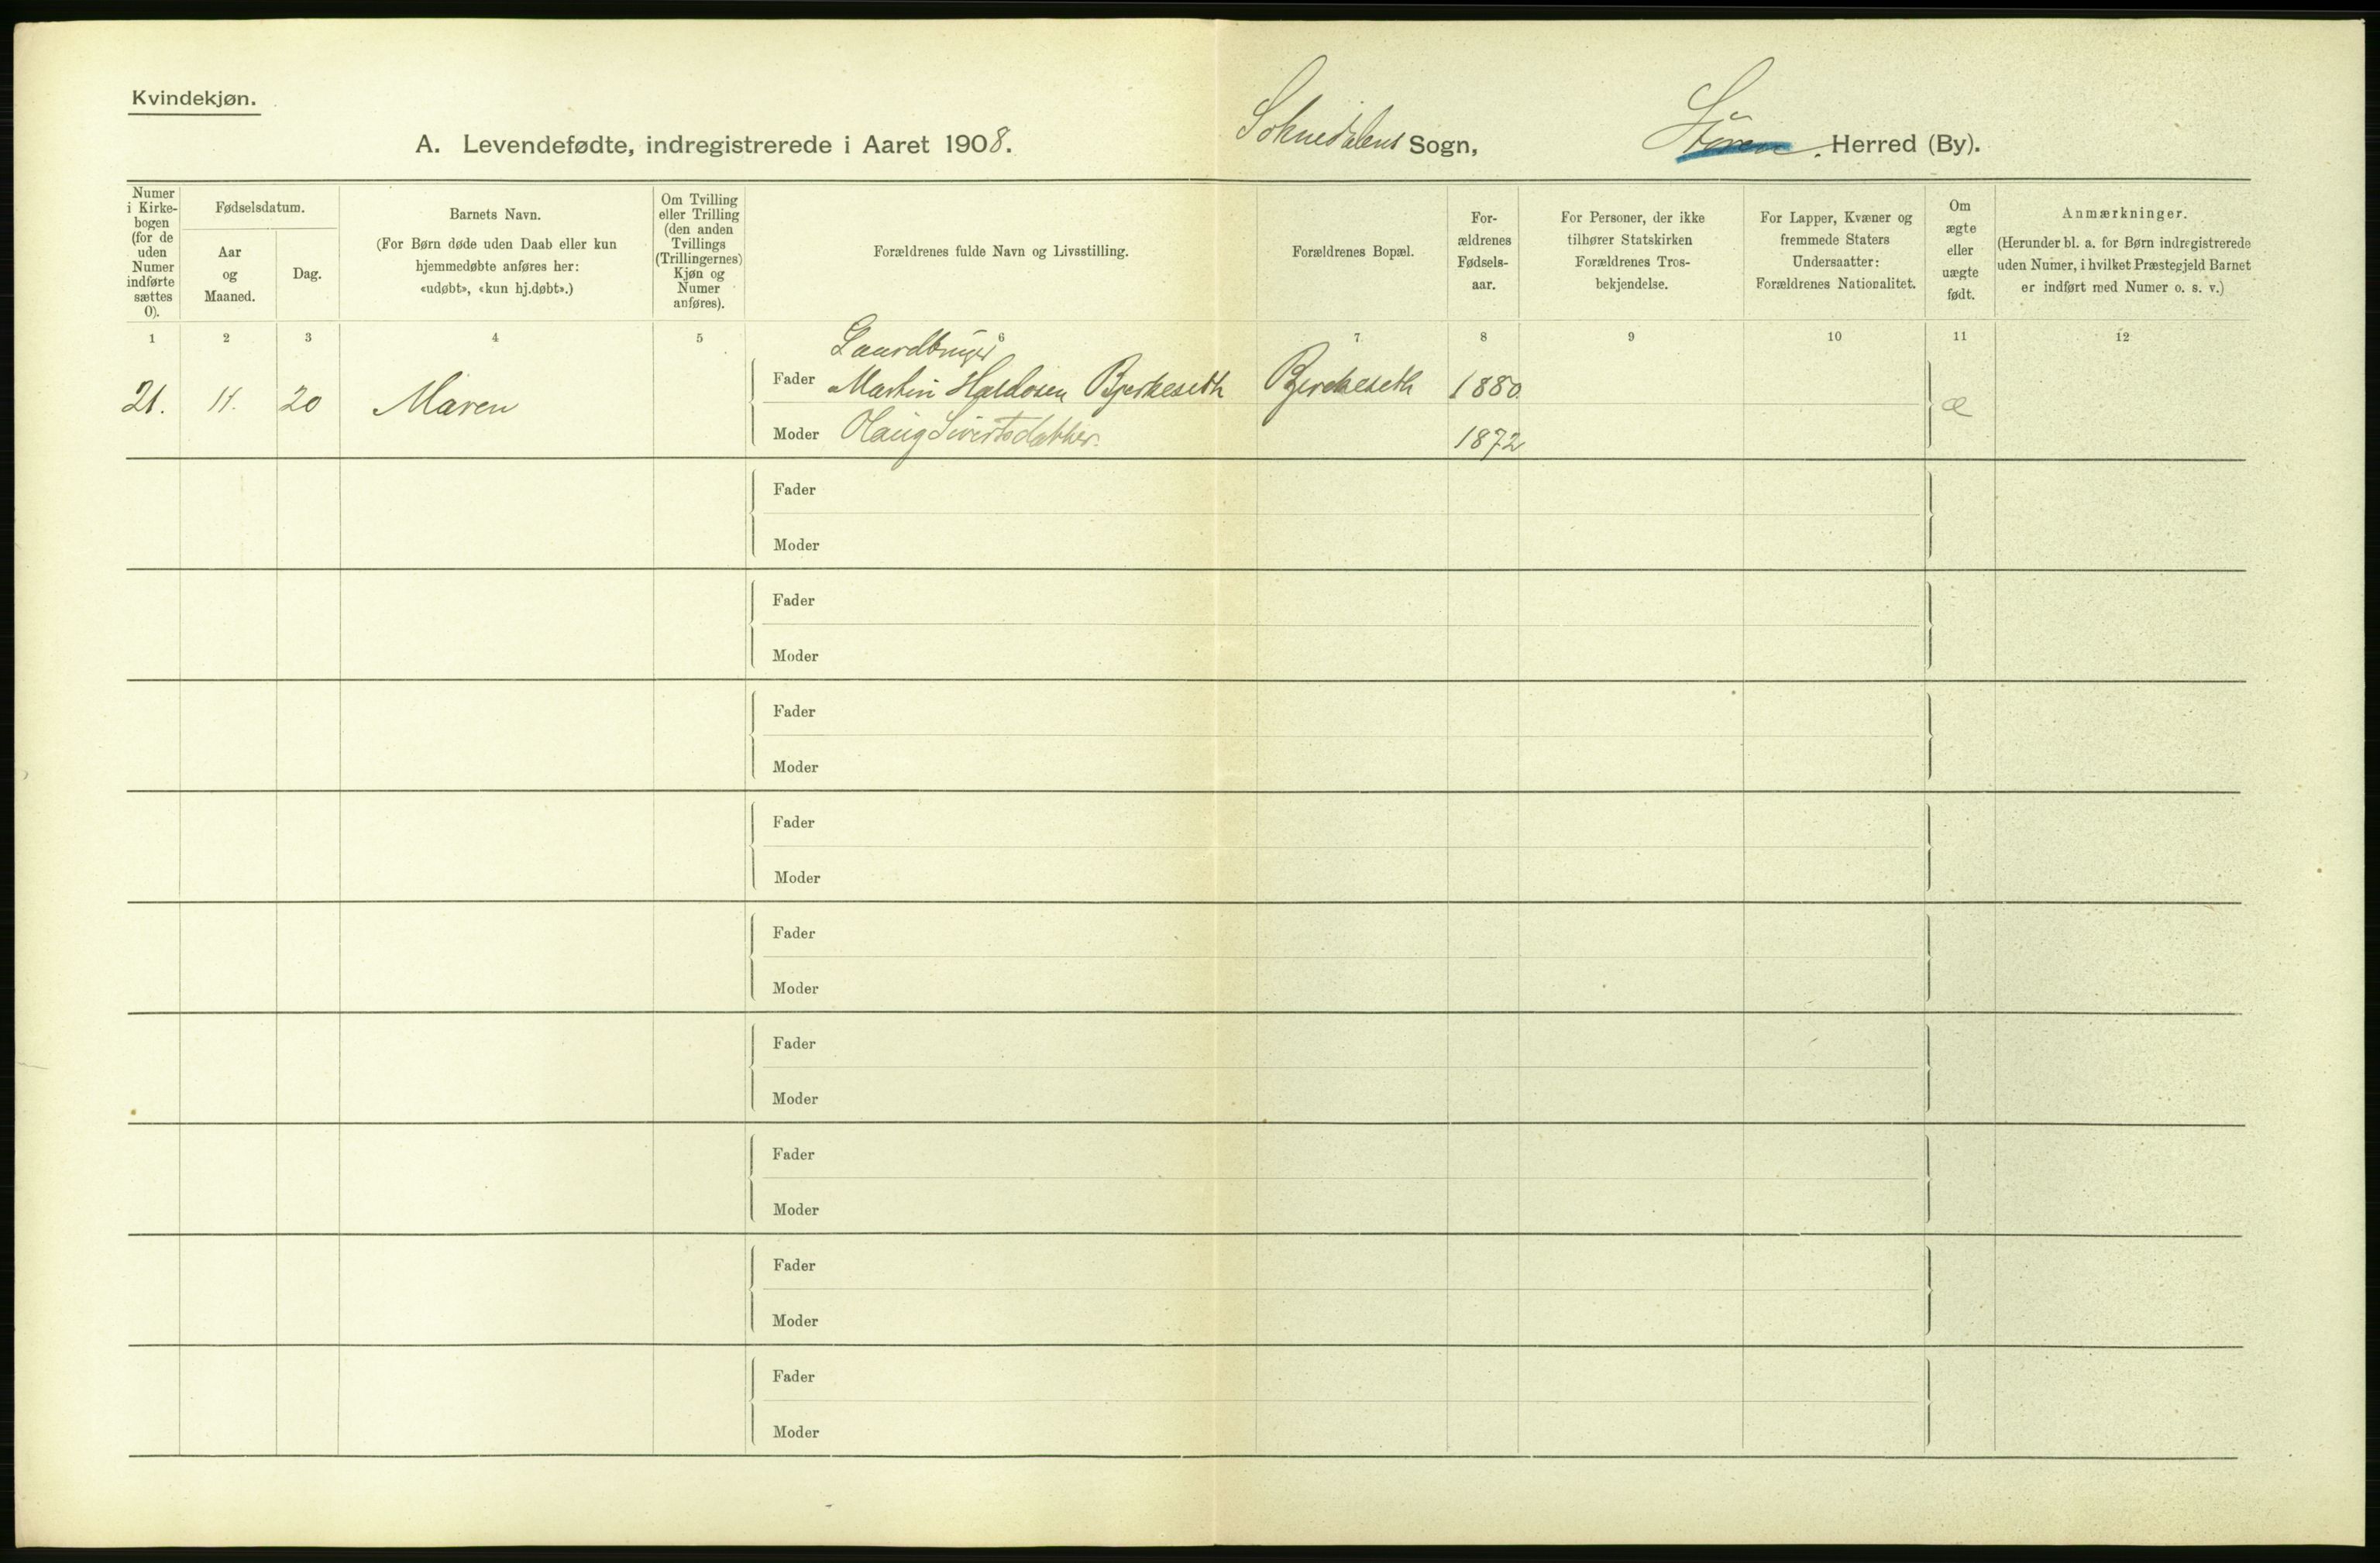 Kvindekjøn.
A. Levendefødte, indregistrerede i Aaret 1908. Soknedalens Sogn, Støren. Herred (By).
Numer i Kirke-
bogen
(for de
uden
Numer
indførte
sættes
0).
Fødselsdatum.
Aar
og
Maaned.
Dag.
Barnets Navn.
(For Børn døde uden Daab eller kun
hjemmedøbte anføres her:
«udøbt», «kun hj.døbt».)
Om Tvilling
eller Trilling
(den anden
Tvillings
(Trillingernes)
Kjøn og
Numer
anføres).
Forældrenes fulde Navn og Livsstilling.
Forældrenes Bopæl.
For-
ældrenes
Fødsels-
aar.
For Personer, der ikke
tilhører Statskirken
Forældrenes Tros-
bekjendelse.
For Lapper, Kvæner og
fremmede Staters
Undersaatter:
Forældrenes Nationalitet.
Om
ægte
eller
uægte
født.
Anmærkninger.
(Herunder bl. a. for Børn indregistrerede
uden Numer, i hvilket Præstegjeld Barnet
er indført med Numer o. s. v.)
1 2 3 4 5 6 7 8 9 10 11 12
Gaardbruger
21. 11. 20 Maren Fader Martin Haldosen Bjerkeseth Bjerkeseth 1880. æ
Moder Olaug Sivertsdatter. 1872
Fader
Moder
Fader
Moder
Fader
Moder
Fader
Moder
Fader
Moder
Fader
Moder
Fader
Moder
Fader
Moder
Fader
Moder